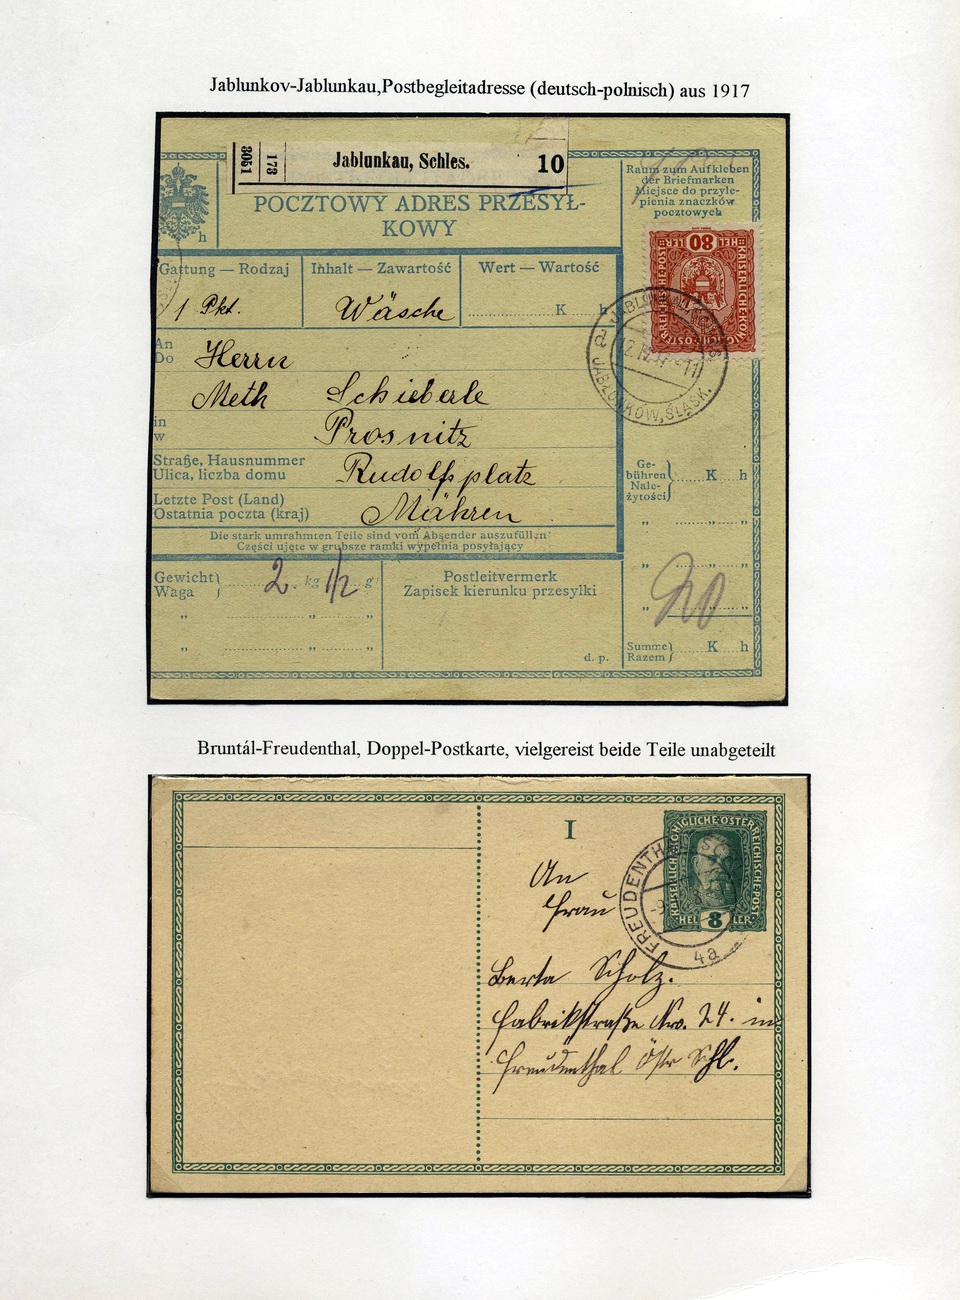 Jablunkov-Jablunkau,Postbegleitadresse (deutsch-polnisch) aus 1917
8051
173
Jablunkau, Schles.
10
h
POCZTOWY ADRES PRZESYŁ-
KOWY
Raum zum Aufkleben
der Briefmarken
Miejsce do przyle-
pienia znaczków
pocztowych
HEL 80 LER
KAISERLICHE·KÖNIGLICH·ÖSTERREICHISCHE·POST
12.IV.17-11
a
JABŁONKÓW, ŚLĄSK.
Gattung — Rodzaj
Inhalt — Zawartość
Wert — Wartość
1 Pkt.
Wäsche
K h
An
Do
Herrn
Meth Schieberle
in
w
Prosnitz
Straße, Hausnummer
Ulica, liczba domu
Rudolfsplatz
Letzte Post (Land)
Ostatnia poczta (kraj)
Mähren
Die stark umrahmten Teile sind vom Absender auszufüllen
Części ujęte w grubsze ramki wypełnia posyłający
Ge-
bühren
Nale-
żytości
K h
" " "
" " "
" "
Gewicht
Waga
2 kg 1/2 g
" " "
" " "
Postleitvermerk
Zapisek kierunku przesylki
d. p.
Summe
Razem
K h
Bruntál-Freudenthal, Doppel-Postkarte, vielgereist beide Teile unabgeteilt
I
KAISERLICHE KÖNIGLICHE·ÖSTERREICHISCHE·POST
HEL 8 LER
FREUDENTHAL
4a
An
Frau
Berta Scholz.
Fabrikstraße Nro. 24. in
Freudenthal Östr Schl.